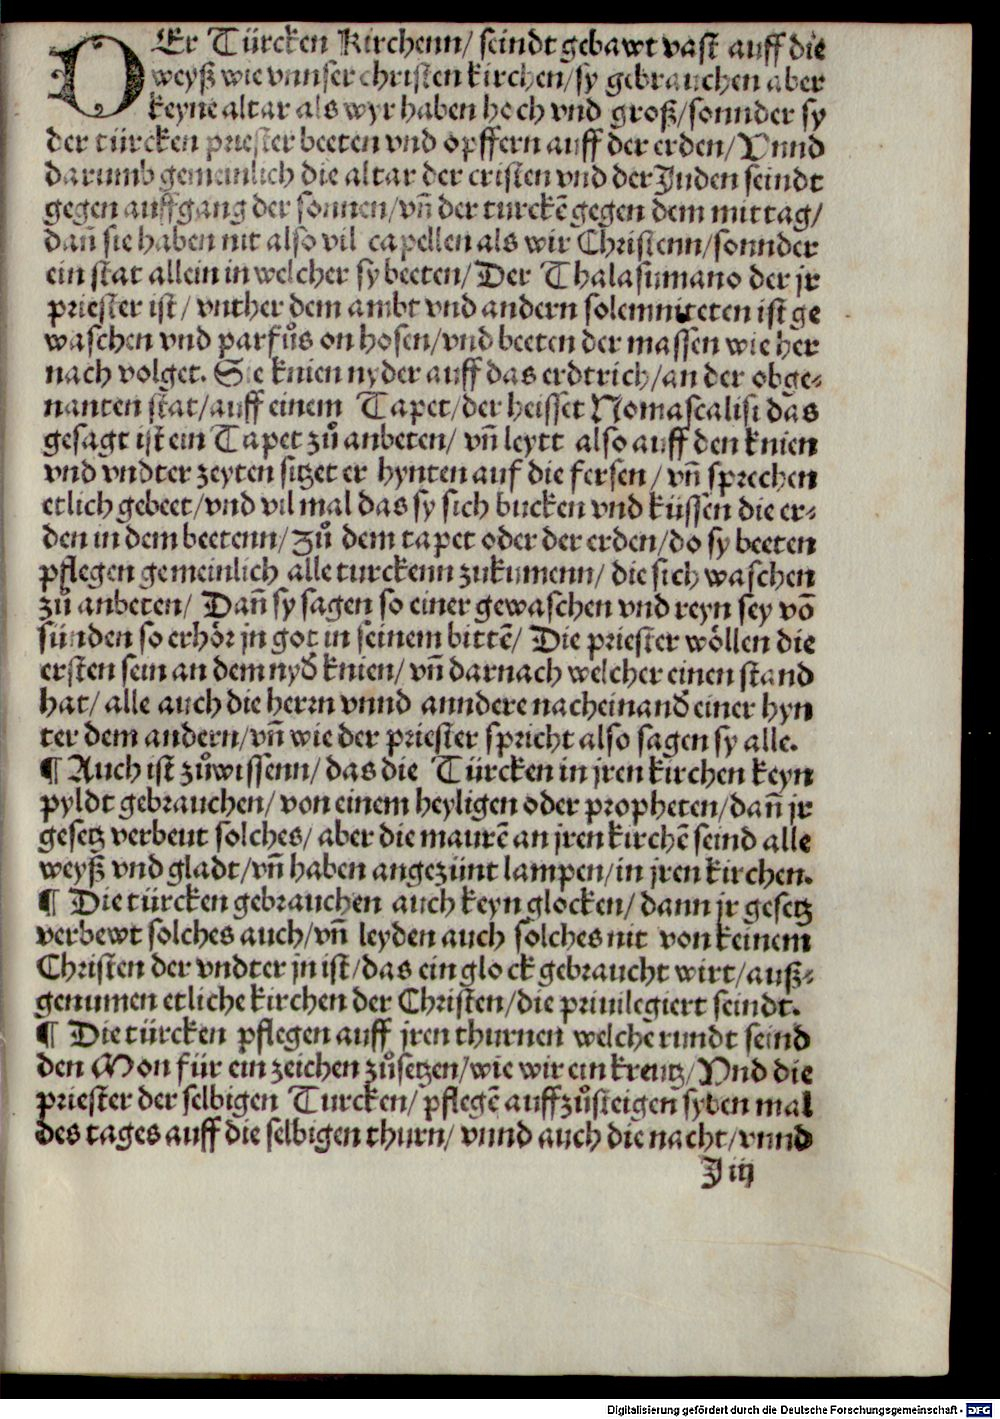 DEr Türcken Kirchenn/ seindt gebawt vast auff die
weyß wie vnnser christen kirchen/sy gebrauchen aber
keyne altar als wyr haben hoch vnd groß/sonnder sy
der türcken priester beeten vnd opffern auff der erden/Vnnd
darumb gemeinlich die altar der cristen vnd der Juden seindt
gegen auffgang der sonnen/vn̄ der turckē gegen dem mittag/
dan̄ sie haben nit also vil capellen als wir Christenn/sonnder
ein stat allein in welcher sy beeten/Der Thalasimano der jr
priester ist/vnther dem ambt vnd andern solemniteten ist ge
waschen vnd parfůs on hosen/vnd beeten der massen wie her
nach volget. Sie knien nyder auff das erdtrich/an der obge⸗
nanten stat/auff einem Tapet/der heisset Nomascalisi das
gesagt ist ein Tapet zů anbeten/ vn̄ leytt also auff den knien
vnd vndter zeyten sitzet er hynten auf die fersen/ vn̄ sprechen
etlich gebeet/vnd vil mal das sy sich bucken vnd küssen die er⸗
den in dem beetenn/Zů dem tapet oder der erden/do sy beeten
pflegen gemeinlich alle turckenn zukumenn/ die sich waschen
zů anbeten/ Dan̄ sy sagen so einer gewaschen vnd reyn sey vō
sünden so erhör jn got in seinem bittē/ Die priester wöllen die
ersten sein an dem nyd̄ knien/ vn̄ darnach welcher einen stand
hat/ alle auch die herrn vnnd anndere nacheinand̄ einer hyn
ter dem andern/vn̄ wie der priester spricht also sagen sy alle.
¶ Auch ist zůwissenn/das die Türcken in jren kirchen keyn
pyldt gebrauchen/ von einem heyligen oder propheten/dan̄ jr
gesetz verbeut solches/ aber die maurē an jren kirchē seind alle
weyß vnd gladt/vn̄ haben angezünt lampen/in jren kirchen.
¶ Die türcken gebrauchen auch keyn glocken/dann jr gesetz
verbewt solches auch/vn̄ leyden auch solches nit von keinem
Christen der vndter jn ist/das ein glock gebraucht wirt/auß⸗
genumen etliche kirchen der Christen/die priuilegiert seindt.
¶ Die türcken pflegen auff jren thurnen welche rundt seind
den Mon für ein zeichen zůsetzen/wie wir ein kreutz/Vnd die
priester der selbigen Turcken/ pflegē auffzůsteigen syben mal
des tages auff die selbigen thurn/ vnnd auch die nacht/vnnd
J iij
Digitalisierung gefördert durch die Deutsche Forschungsgemeinschaft - DFG